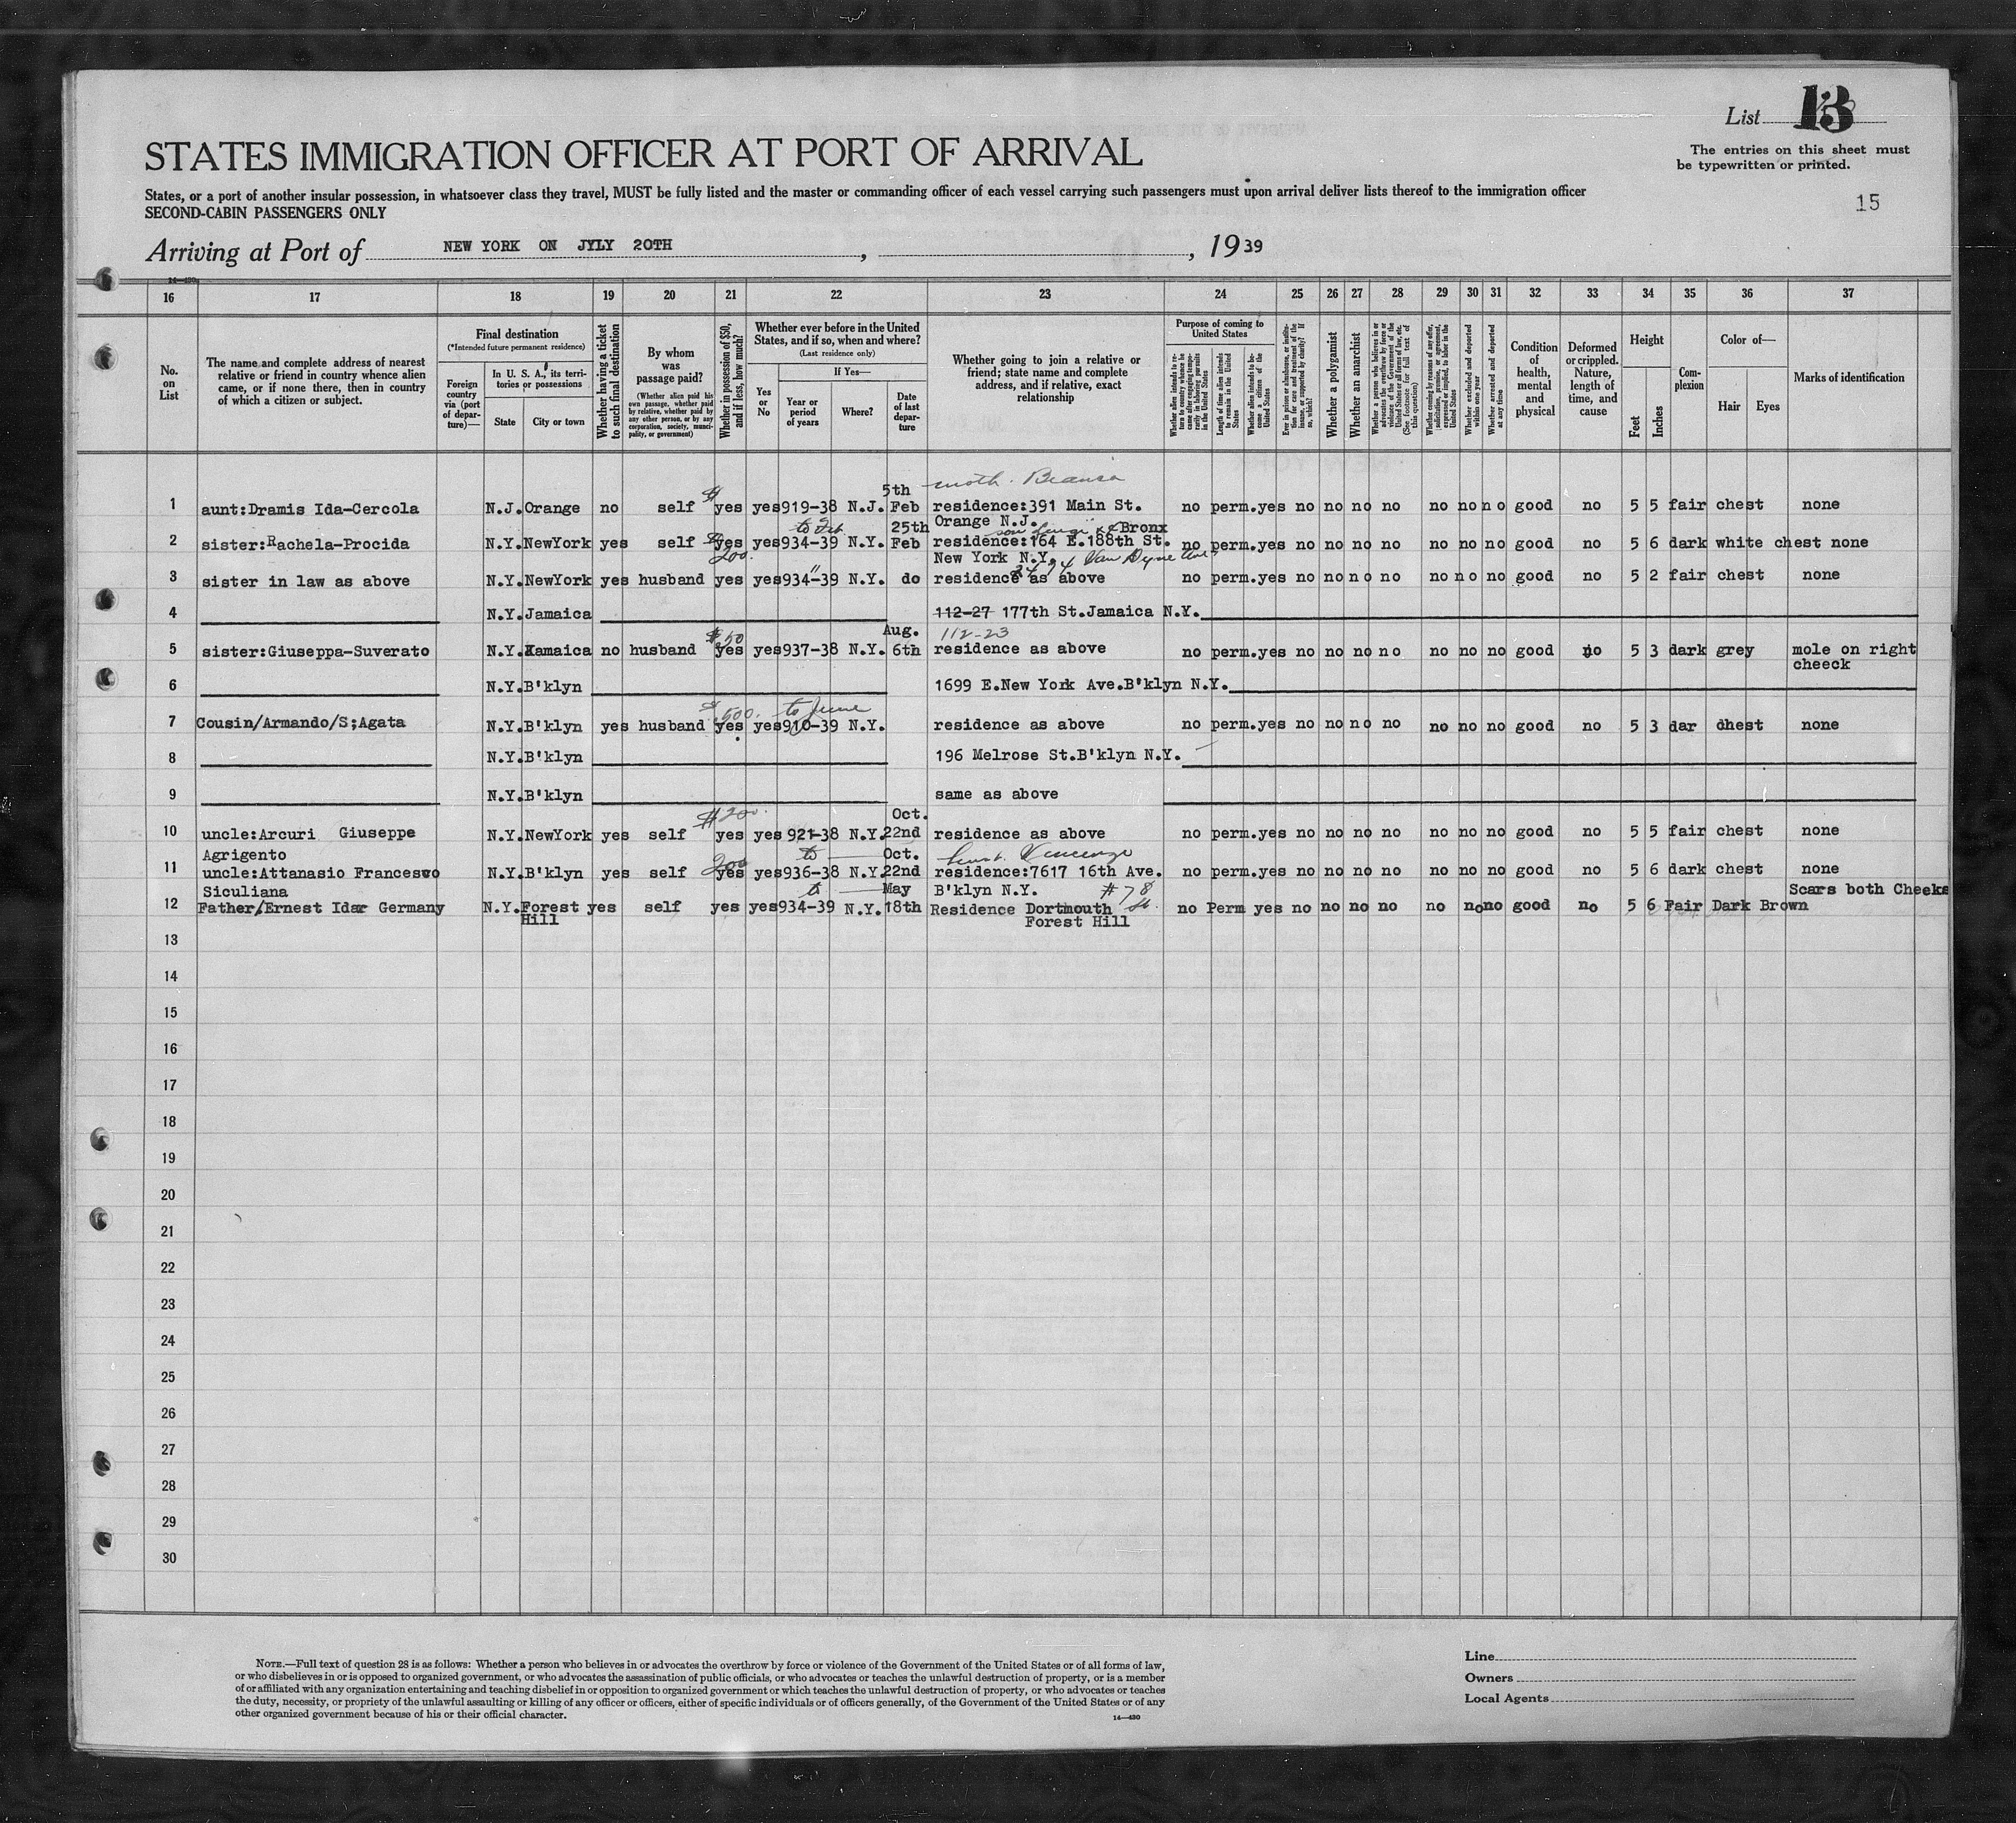 List 13
The entries on this sheet must
be typewritten or printed.
STATES IMMIGRATION OFFICER AT PORT OF ARRIVAL
States, or a port of another insular possession, in whatsoever class they travel, MUST be fully listed and the master or commanding officer of each vessel carrying such passengers must upon arrival deliver lists thereof to the immigration officer
SECOND-CABIN PASSENGERS ONLY
15
Arriving at Port of NEW YORK ON JYLY 20TH , , 1939
14-430
16 17 18 19 20 21 22 23 24 25 26 27 28 29 30 31 32 33 34 35 36 37
No. on List
The name and complete address of nearest relative or friend in country whence alien came, or if none there, then in country of which a citizen or subject.
Final destination
(*Intended future permanent residence)
Foreign country via (port of departure)—
In U. S. A., its territories or possessions
State
City or town
Whether having a ticket to such final destination
By whom was passage paid?
(Whether alien paid his own passage, whether paid by relative, whether paid by any other person, or by any corporation, society, municipality, or government)
Whether in possession of $50, and if less, how much?
Whether ever before in the United States, and if so, when and where?
(Last residence only)
Yes or No
If Yes—
Year or period of years
Where?
Date of last departure
Whether going to join a relative or friend; state name and complete address, and if relative, exact relationship
Purpose of coming to United States
Whether alien intends to return to country whence he came after engaging temporarily in laboring pursuits in the United States
Length of time alien intends to remain in the United States
Whether alien intends to become a citizen of the United States
Ever in prison or almshouse, or institution for care and treatment of the insane, or supported by charity? If so, which?
Whether a polygamist
Whether an anarchist
Whether a person who believes in or advocates the overthrow by force or violence of the Government of the United States or all forms of law, etc. (See footnote for full text of this question)
Whether coming by reason of any offer, solicitation, promise, or agreement, expressed or implied, to labor in the United States
Whether excluded and deported within one year
Whether arrested and deported at any time
Condition of health, mental and physical
Deformed or crippled. Nature, length of time, and cause
Height
Feet
Inches
Complexion
Color of—
Hair
Eyes
Marks of identification
5th moth.
1 aunt:Dramis Ida-Cercola N.J. Orange no self $ yes yes 919-38 N.J. Feb residence:391 Main St. no perm. yes no no no no no no no good no 5 5 fair chest none
to Feb. 25th Orange N.J. Bronx
2 sister:Rachela-Procida N.Y. NewYork yes self $ yes yes 934-39 N.Y. Feb residence:164 E.188th St. no perm. yes no no no no no no no good no 5 6 dark white chest none
200. New York N.Y. Van Dyne Ave
3 sister in law as above N.Y. NewYork yes husband yes yes 934-39 N.Y. do residence as above no perm. yes no no no no no no no good no 5 2 fair chest none
4 N.Y. Jamaica 112-27 177th St.Jamaica N.Y.
$50 Aug. 112-23
5 sister:Giuseppa-Suverato N.Y. Jamaica no husband yes yes 937-38 N.Y. 6th residence as above no perm. yes no no no no no no no good no 5 3 dark grey mole on right
cheeck
6 N.Y. B'klyn 1699 E.New York Ave.B'klyn N.Y.
$ 500. to June
7 Cousin/Armando/S;Agata N.Y. B'klyn yes husband yes yes 910-39 N.Y. residence as above no perm. yes no no no no no no no good no 5 3 dar dhest none
8 N.Y. B'klyn 196 Melrose St.B'klyn N.Y.
9 N.Y. B'klyn same as above
$200. Oct.
10 uncle:Arcuri Giuseppe N.Y. NewYork yes self yes yes 921-38 N.Y. 22nd residence as above no perm. yes no no no no no no no good no 5 5 fair chest none
Agrigento to Oct. Vincenzo
11 uncle:Attanasio Francesco N.Y. B'klyn yes self 200 yes yes 936-38 N.Y. 22nd residence:7617 16th Ave. no perm. yes no no no no no no no good no 5 6 dark chest none
Siculiana to May B'klyn N.Y. #78 St. Scars both Cheeks
12 Father/Ernest Idar Germany N.Y. Forest yes self yes yes 934-39 N.Y. 18th Residence Dortmouth no Perm yes no no no no no no no good no 5 6 Fair Dark Brown
Hill Forest Hill
13
14
15
16
17
18
19
20
21
22
23
24
25
26
27
28
29
30
NOTE.—Full text of question 28 is as follows: Whether a person who believes in or advocates the overthrow by force or violence of the Government of the United States or of all forms of law,
or who disbelieves in or is opposed to organized government, or who advocates the assassination of public officials, or who advocates or teaches the unlawful destruction of property, or is a member
of or affiliated with any organization entertaining and teaching disbelief in or opposition to organized government or which teaches the unlawful destruction of property, or who advocates or teaches
the duty, necessity, or propriety of the unlawful assaulting or killing of any officer or officers, either of specific individuals or of officers generally, of the Government of the United States or of any
other organized government because of his or their official character.
14-430
Line
Owners
Local Agents